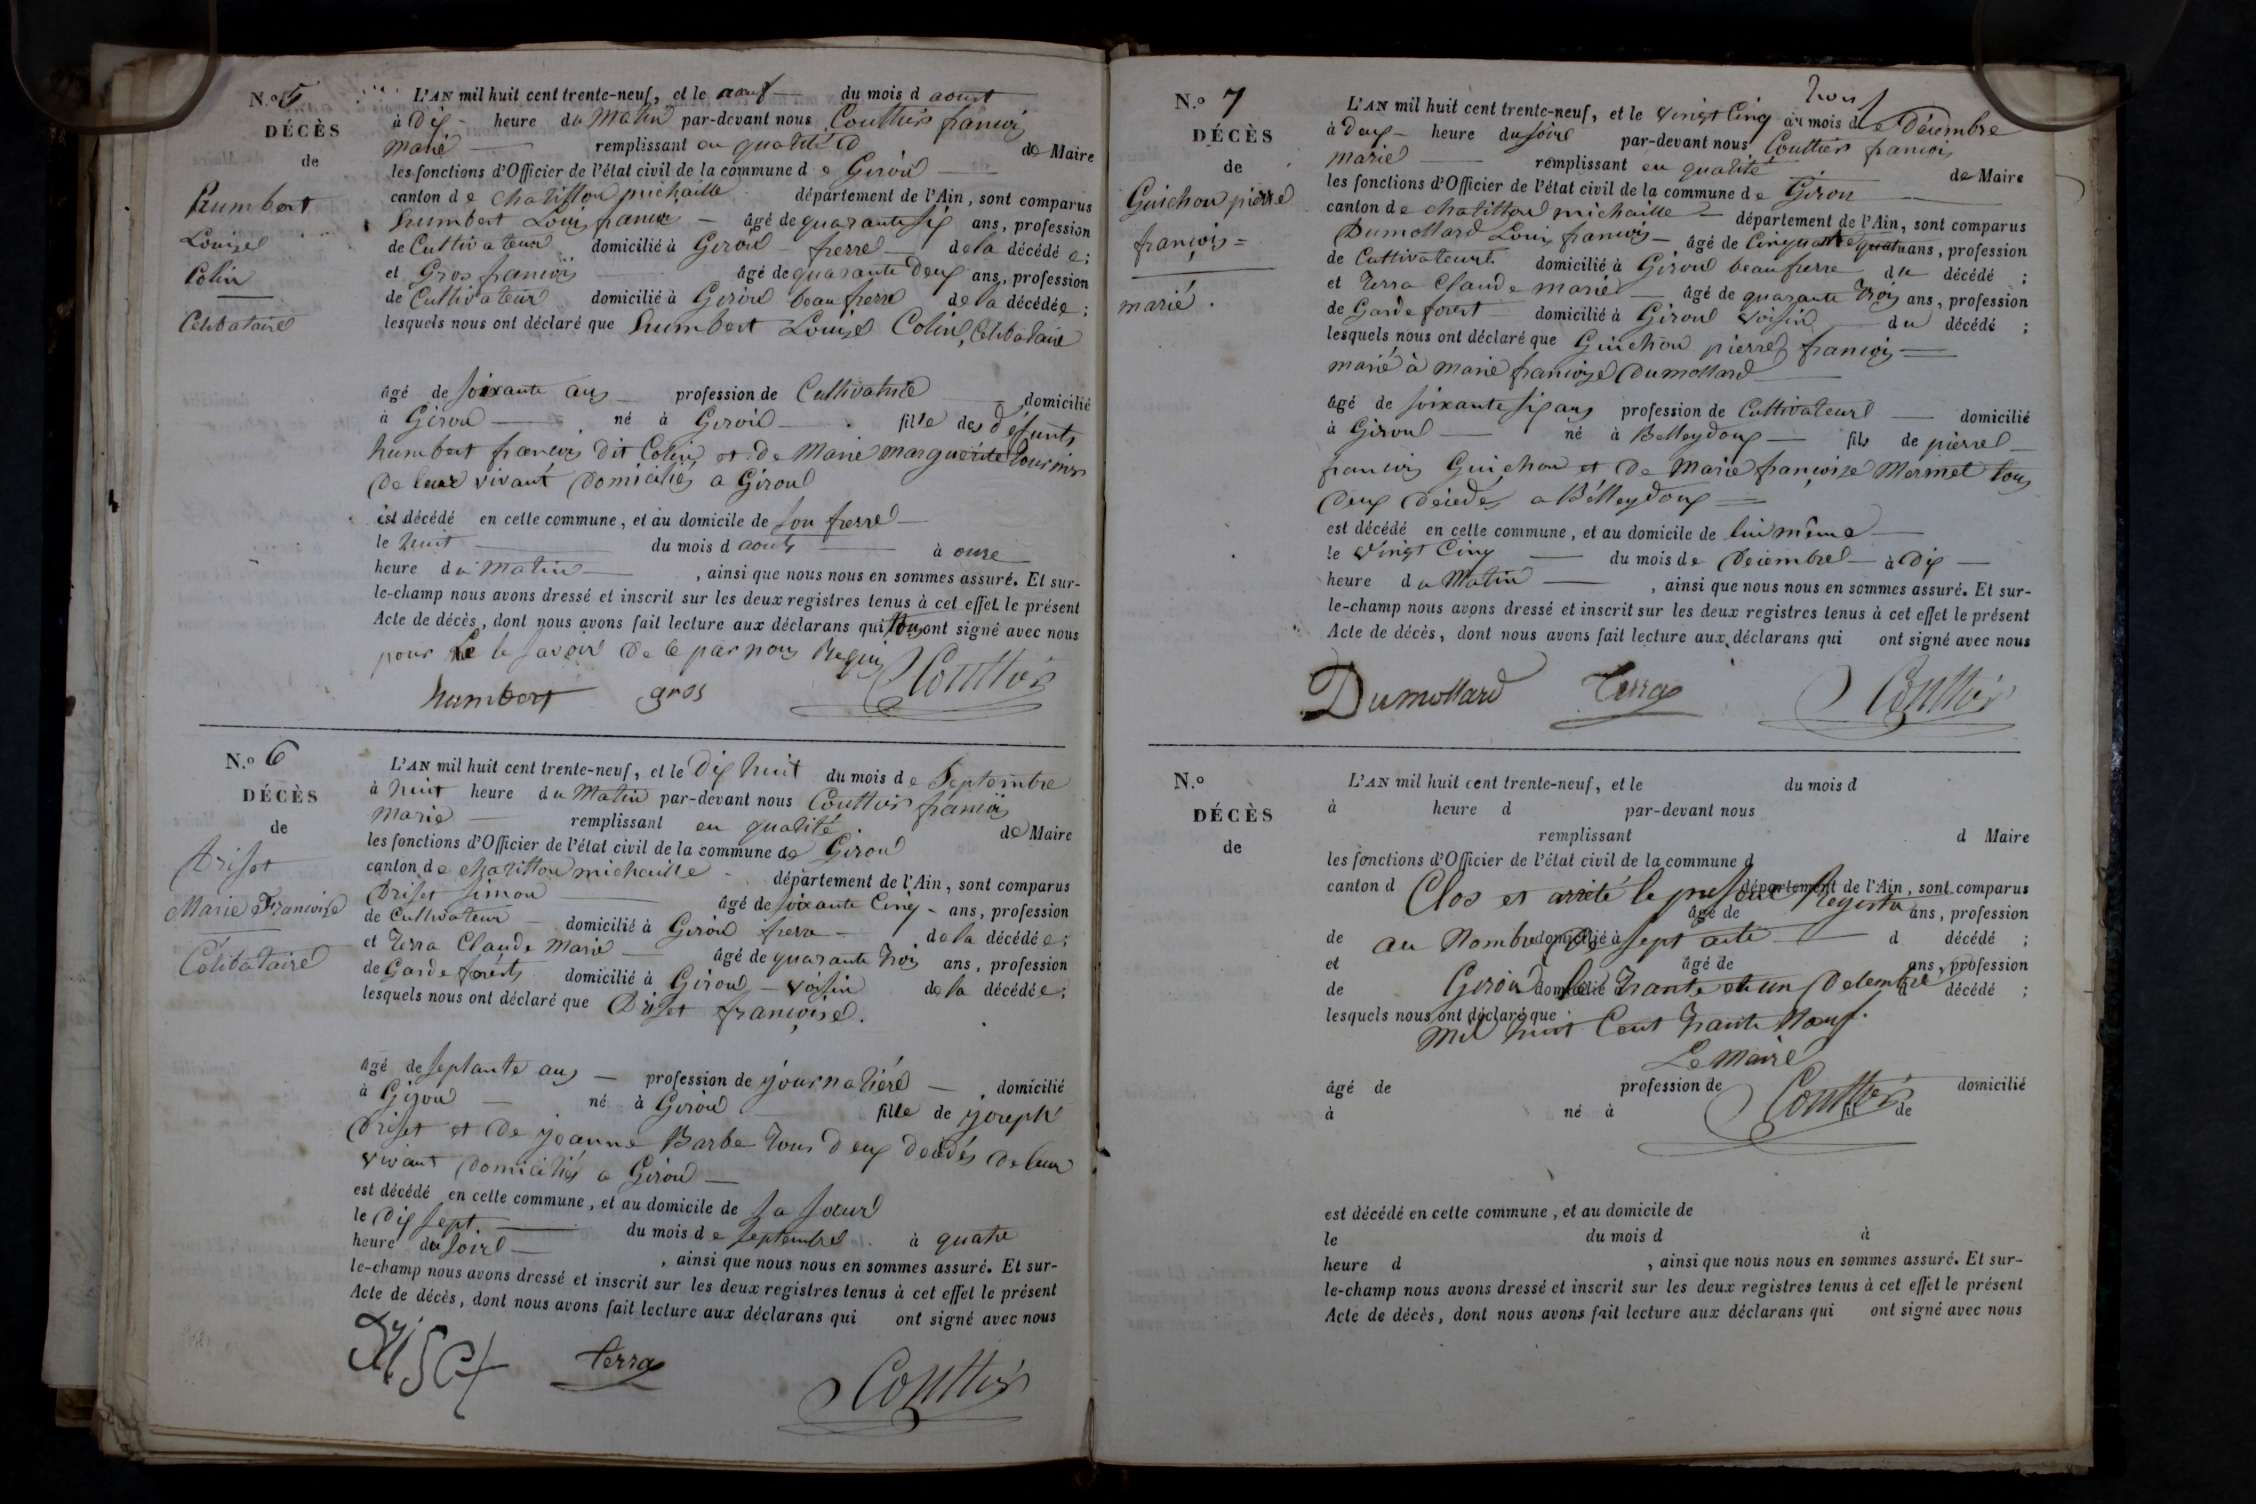 N.º 5
DÉCÈS
de
humbert
Louise
Colin
Celibataire
L'AN mil huit cent trente-neuf, et le neuf du mois d aout
à dix heure du Matin par-devant nous Couttier francois
marie remplissant en qualité de Maire
les fonctions d'Officier de l'état civil de la commune de Giron
canton de chatillon michaille département de l'Ain, sont comparus
humbert Louis francois âgé de quarante six ans, profession
de Cultivateur domicilié à Giron frerre de la décédée;
et Gros francois âgé de quarante deux ans, profession
de Cultivateur domicilié à Giron beau frerre de la décédée;
lesquels nous ont déclaré que humbert Louise Colin, Celibataire
âgé de soixante ans profession de Cultivatrice domicilié
à Giron né à Giron fille des défunts
humbert francois dit Colin et de Marie marguerite tournier
de leur vivant domiciliés a Giron
est décédé en cette commune, et au domicile de son frerre
le huit du mois d aout à onze
heure du Matin, ainsi que nous nous en sommes assuré. Et sur-
le-champ nous avons dressé et inscrit sur les deux registres tenus à cet effet le présent
Acte de décès, dont nous avons fait lecture aux déclarans qui ont signé avec nous
pour le savoir de ce par nous Requis
humbert gros Couttier
N.º 6
DÉCÈS
de
Driset
Marie Françoise
Célibataire
L'AN mil huit cent trente-neuf, et le dix huit du mois de Septembre
à huit heure du Matin par-devant nous Couttier francois
Marie remplissant en qualité de Maire
les fonctions d'Officier de l'état civil de la commune de Giron
canton de chatillon michaille département de l'Ain, sont comparus
Driset Simon âgé de soixante Cinq ans, profession
de Cultivateur domicilié à Giron frerre de la décédée;
et Terra Claude Marie âgé de quarante trois ans, profession
de Garde forêts domicilié à Giron voisin de la décédée;
lesquels nous ont déclaré que Driset françoise.
âgé de septante ans profession de journalière domicilié
à Giron né à Giron fille de joseph
Driset et de jeanne Barbe tous deux décédés de leur
vivant domiciliés a Giron
est décédé en cette commune, et au domicile de sa sœur
le dix sept du mois de septembre à quatre
heure du soire, ainsi que nous nous en sommes assuré. Et sur-
le-champ nous avons dressé et inscrit sur les deux registres tenus à cet effet le présent
Acte de décès, dont nous avons fait lecture aux déclarans qui ont signé avec nous
Driset terra Couttier
N.º 7
DÉCÈS
de
Guichon pierre
françois
marié.
trois
L'AN mil huit cent trente-neuf, et le vingt Cinq du mois de Décembre
à deux heure du soire par-devant nous Couttier francois
marie remplissant en qualité de Maire
les fonctions d'Officier de l'état civil de la commune de Giron
canton de chatillon michaille département de l'Ain, sont comparus
Dumollard Louis francois âgé de Cinquante quatre ans, profession
de Cultivateur domicilié à Giron beau frerre du décédé;
et Terra Claude marie âgé de quarante trois ans, profession
de Garde foret domicilié à Giron voisin du décédé;
lesquels nous ont déclaré que Guichon pierre francois
marié à marie françoise Dumollard
âgé de soixante six ans profession de Cultivateur domicilié
à Giron né à Belleydoux fils de pierre
francois Guichon et de Marie françoise Mermet tous
deux décédés a Bélleydoux
est décédé en cette commune, et au domicile de lui même
le vingt Cinq du mois de Décembre à dix
heure du Matin, ainsi que nous nous en sommes assuré. Et sur-
le-champ nous avons dressé et inscrit sur les deux registres tenus à cet effet le présent
Acte de décès, dont nous avons fait lecture aux déclarans qui ont signé avec nous
Dumollard Terra Couttier
N.º
DÉCÈS
de
L'AN mil huit cent trente-neuf, et le du mois d
à heure d par-devant nous
remplissant d Maire
les fonctions d'Officier de l'état civil de la commune d
canton d département de l'Ain, sont comparus
Clos et arrêté le présent Registre
âgé de ans, profession
de domicilié à d décédé;
au Nombre de sept acte
et âgé de ans, profession
de domicilié d décédé;
Giron le trante et un Decembre
lesquels nous ont déclaré que
mil huit Cent trante Neuf.
Le Maire
âgé de profession de domicilié
Couttier
à né à fil de
est décédé en cette commune, et au domicile de
le du mois d à
heure d, ainsi que nous nous en sommes assuré. Et sur-
le-champ nous avons dressé et inscrit sur les deux registres tenus à cet effet le présent
Acte de décès, dont nous avons fait lecture aux déclarans qui ont signé avec nous